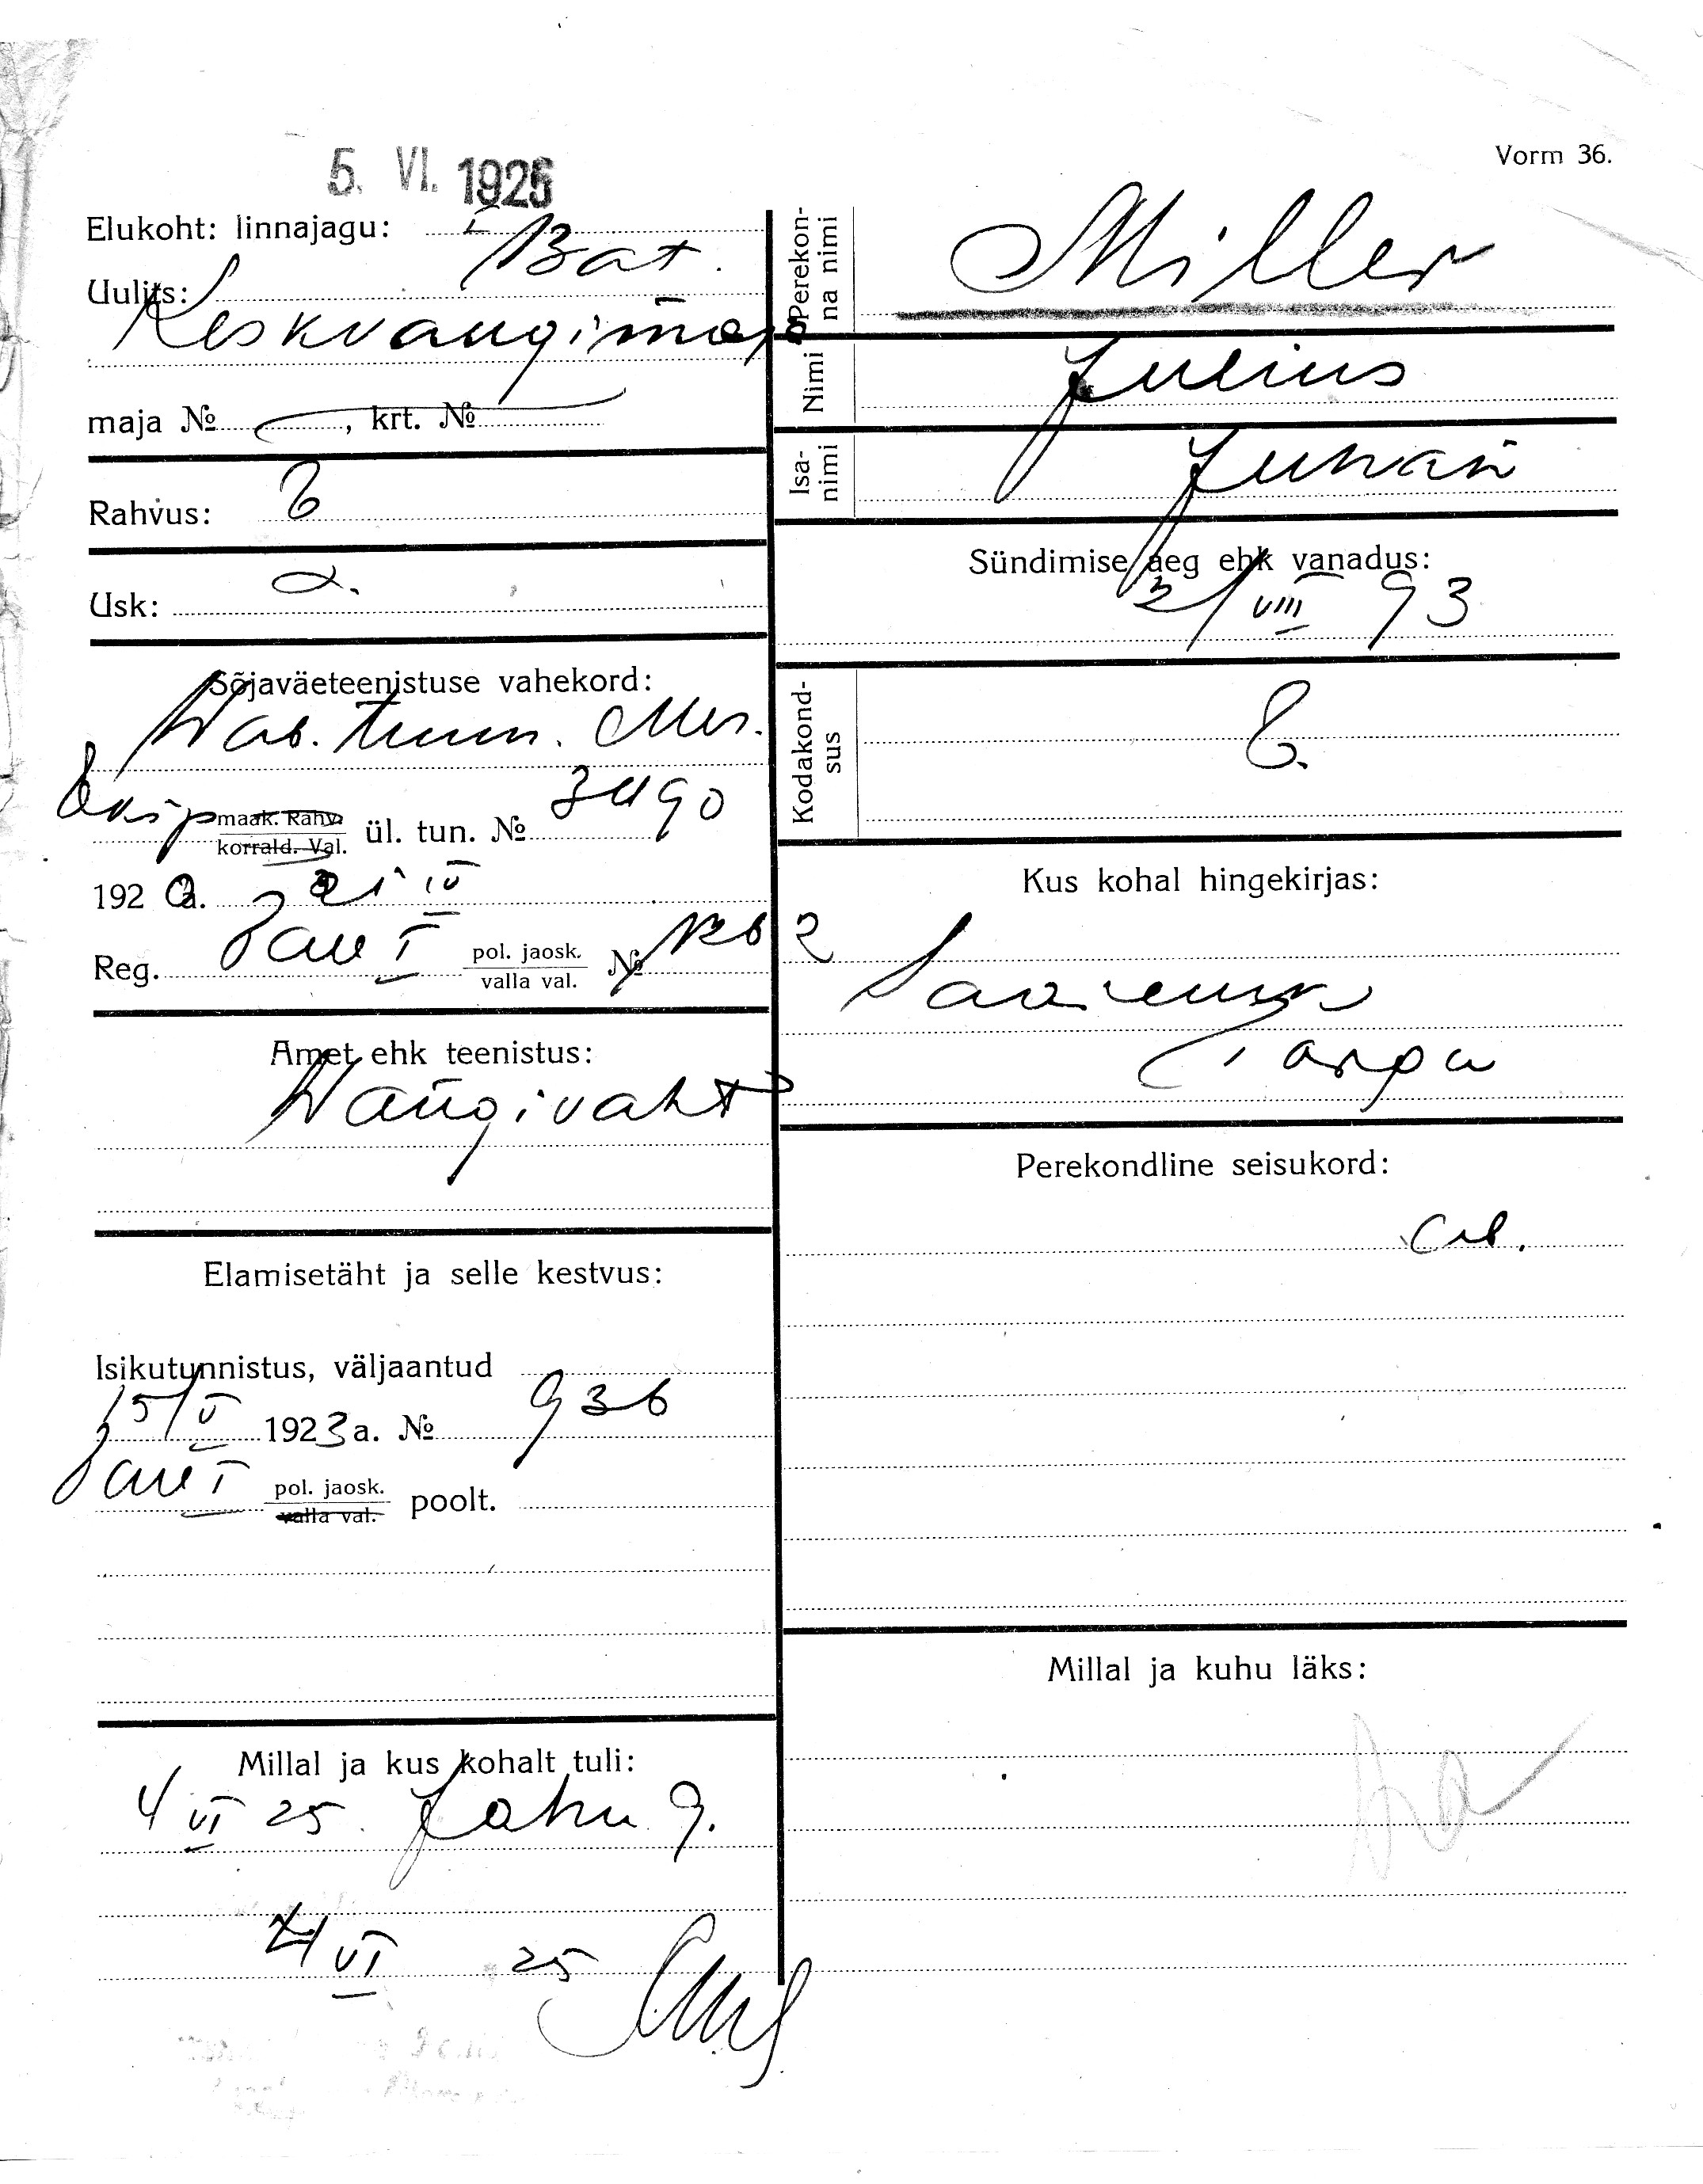 Vorm 36.
5. VI. 1925
Elukoht: linnajagu: I
Uulits: Bat.
Keskvangimaja
maja № , krt. №
Rahvus: E
Usk: L.
Sõjaväeteenistuse vahekord:
Wab. tunn.
maak. Rahv. korrald. Val. ül. tun. № 3490
192 a. 21 IV
Reg. I pol. jaosk. valla val. № 1262
Amet ehk teenistus:
Wangivaht
Elamisetäht ja selle kestvus:
Isikutunnistus, väljaantud
15/V 1923 a. № 936
I pol. jaosk. valla val. poolt.
Millal ja kus kohalt tuli:
4 VI 25. Jahu 9.
4 VI 25
Perekonna nimi Miller
Nimi Julius
Isanimi Juhan
Sündimise aeg ehk vanadus:
2/VIII 93
Kodakondsus E.
Kus kohal hingekirjas:
Tarpu
Perekondline seisukord:
Millal ja kuhu läks: